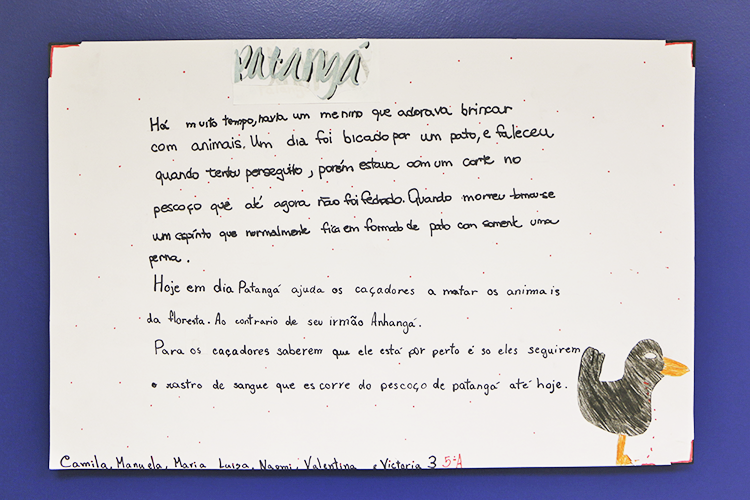 Patangá
Há muito tempo, havia um menino que adorava brincar
com animais. Um dia foi bicado por um pato, e faleceu
quando tentou persegui-lo, porém estava com um corte no
pescoço que até agora não foi fechado. Quando morreu tornou-se
um espírito que normalmente fica em formado de pato com somente uma
perna.
Hoje em dia Patangá ajuda os caçadores a matar os animais
da floresta. Ao contrario de seu irmão Anhangá.
Para os caçadores saberem que ele está por perto é so eles seguirem
o rastro de sangue que escorre do pescoço de patangá até hoje.
Camila, Manuela, Maria Luisa, Naomi, Valentina e Victoria 3 5ºA